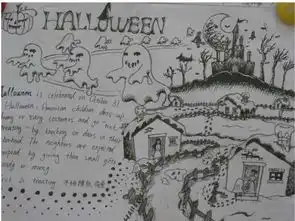 HALLOWEEN
Halloween is celebrated in October 31
(Halloween, American children dress up
funny or scary costumes and go trick
treating" by knocking on doors in their
neighborhood. The neighbors are expected
respond by giving them small gifts
or money
is treating